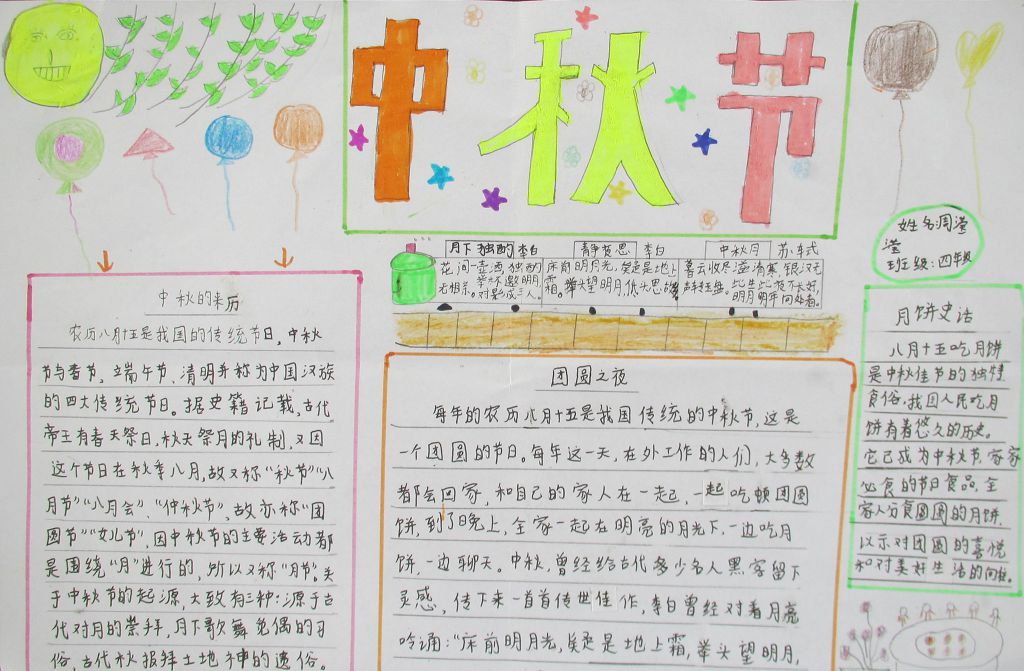 中秋节
姓名:周滢滢
班级:四年级
月下独酌 李白
花间一壶酒,独酌无相亲。举杯邀明月,对影成三人。
静夜思 李白
床前明月光,疑是地上霜。举头望明月,低头思故
中秋月 苏轼
暮云收尽溢清寒,银汉无声转玉盘。此生此夜不长好,明月明年何处看。
中秋的来历
农历八月十五是我国的传统节日。中秋
节与春节、端午节、清明并称为中国汉族
的四大传统节日。据史籍记载,古代
帝王有春天祭日,秋天祭月的礼制,又因
这个节日在秋季八月,故又称“秋节”“八
月节”“八月会”、“仲秋节”,故亦称“团
圆节”“女儿节”,因中秋节的主要活动都
是围绕“月”进行的,所以又称“月节”。关
于中秋节的起源,大致有三种:源于古
代对月的崇拜,月下歌舞觅偶的习
俗,古代秋报拜土地神的遗俗。
团圆之夜
每年的农历八月十五是我国传统的中秋节,这是
一个团圆的节日。每年这一天,在外工作的人们,大多数
都会回家,和自己的家人在一起,一起吃顿团圆
饼,到了晚上,全家一起在明亮的月光下,一边吃月
饼,一边聊天。中秋,曾经给古代多少名人墨客留下
灵感,传下来一首首传世佳作,李白曾经对着月亮
吟诵:“床前明月光,疑是地上霜,举头望明月,
月饼史话
八月十五吃月饼
是中秋佳节的独特
食俗,我国人民吃月
饼有着悠久的历史。
它已成为中秋节,家家
必食的节日食品,全
家人分食圆圆的月饼,
以示对团圆的喜悦
和对美好生活的向往。